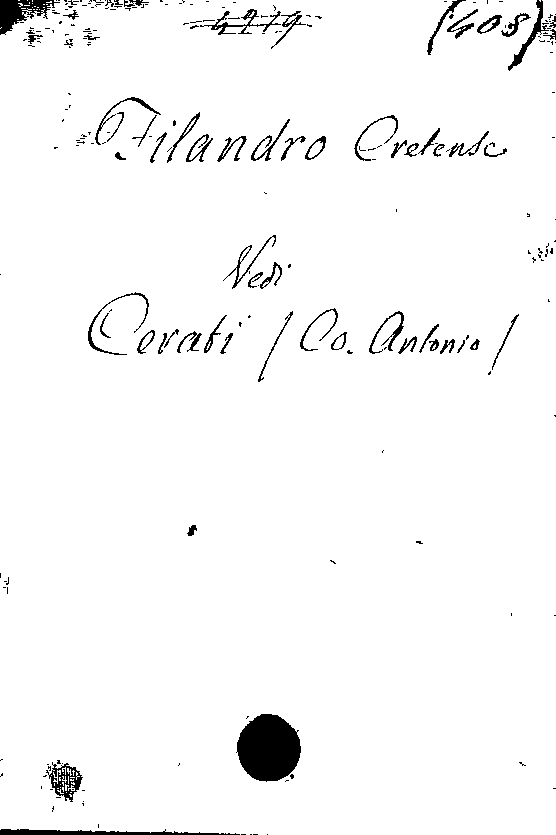 4219 (408)
Filandro Cretense
Vedi
Cerati / Co. Antonio /